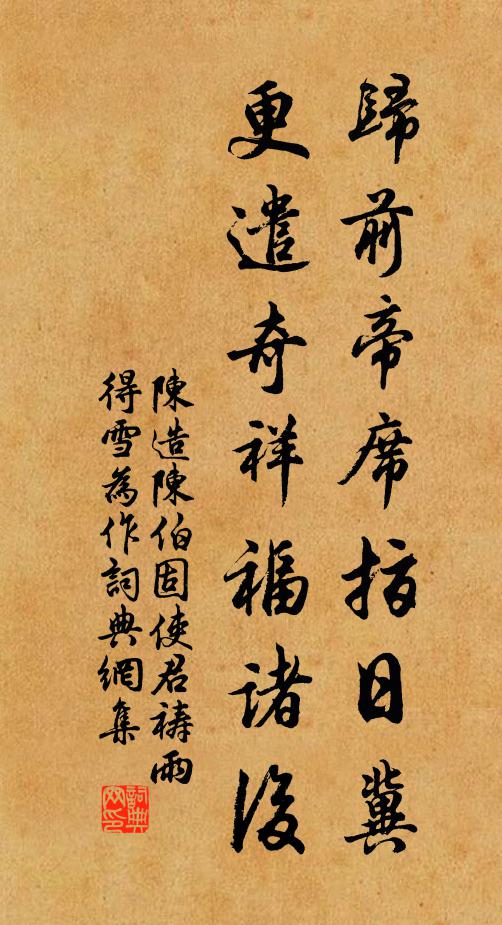 歸前帝席指日冀
更遣奇祥福諸後
陳造陳伯固使君禱雨
得雪為作詞典網集
詞典网印